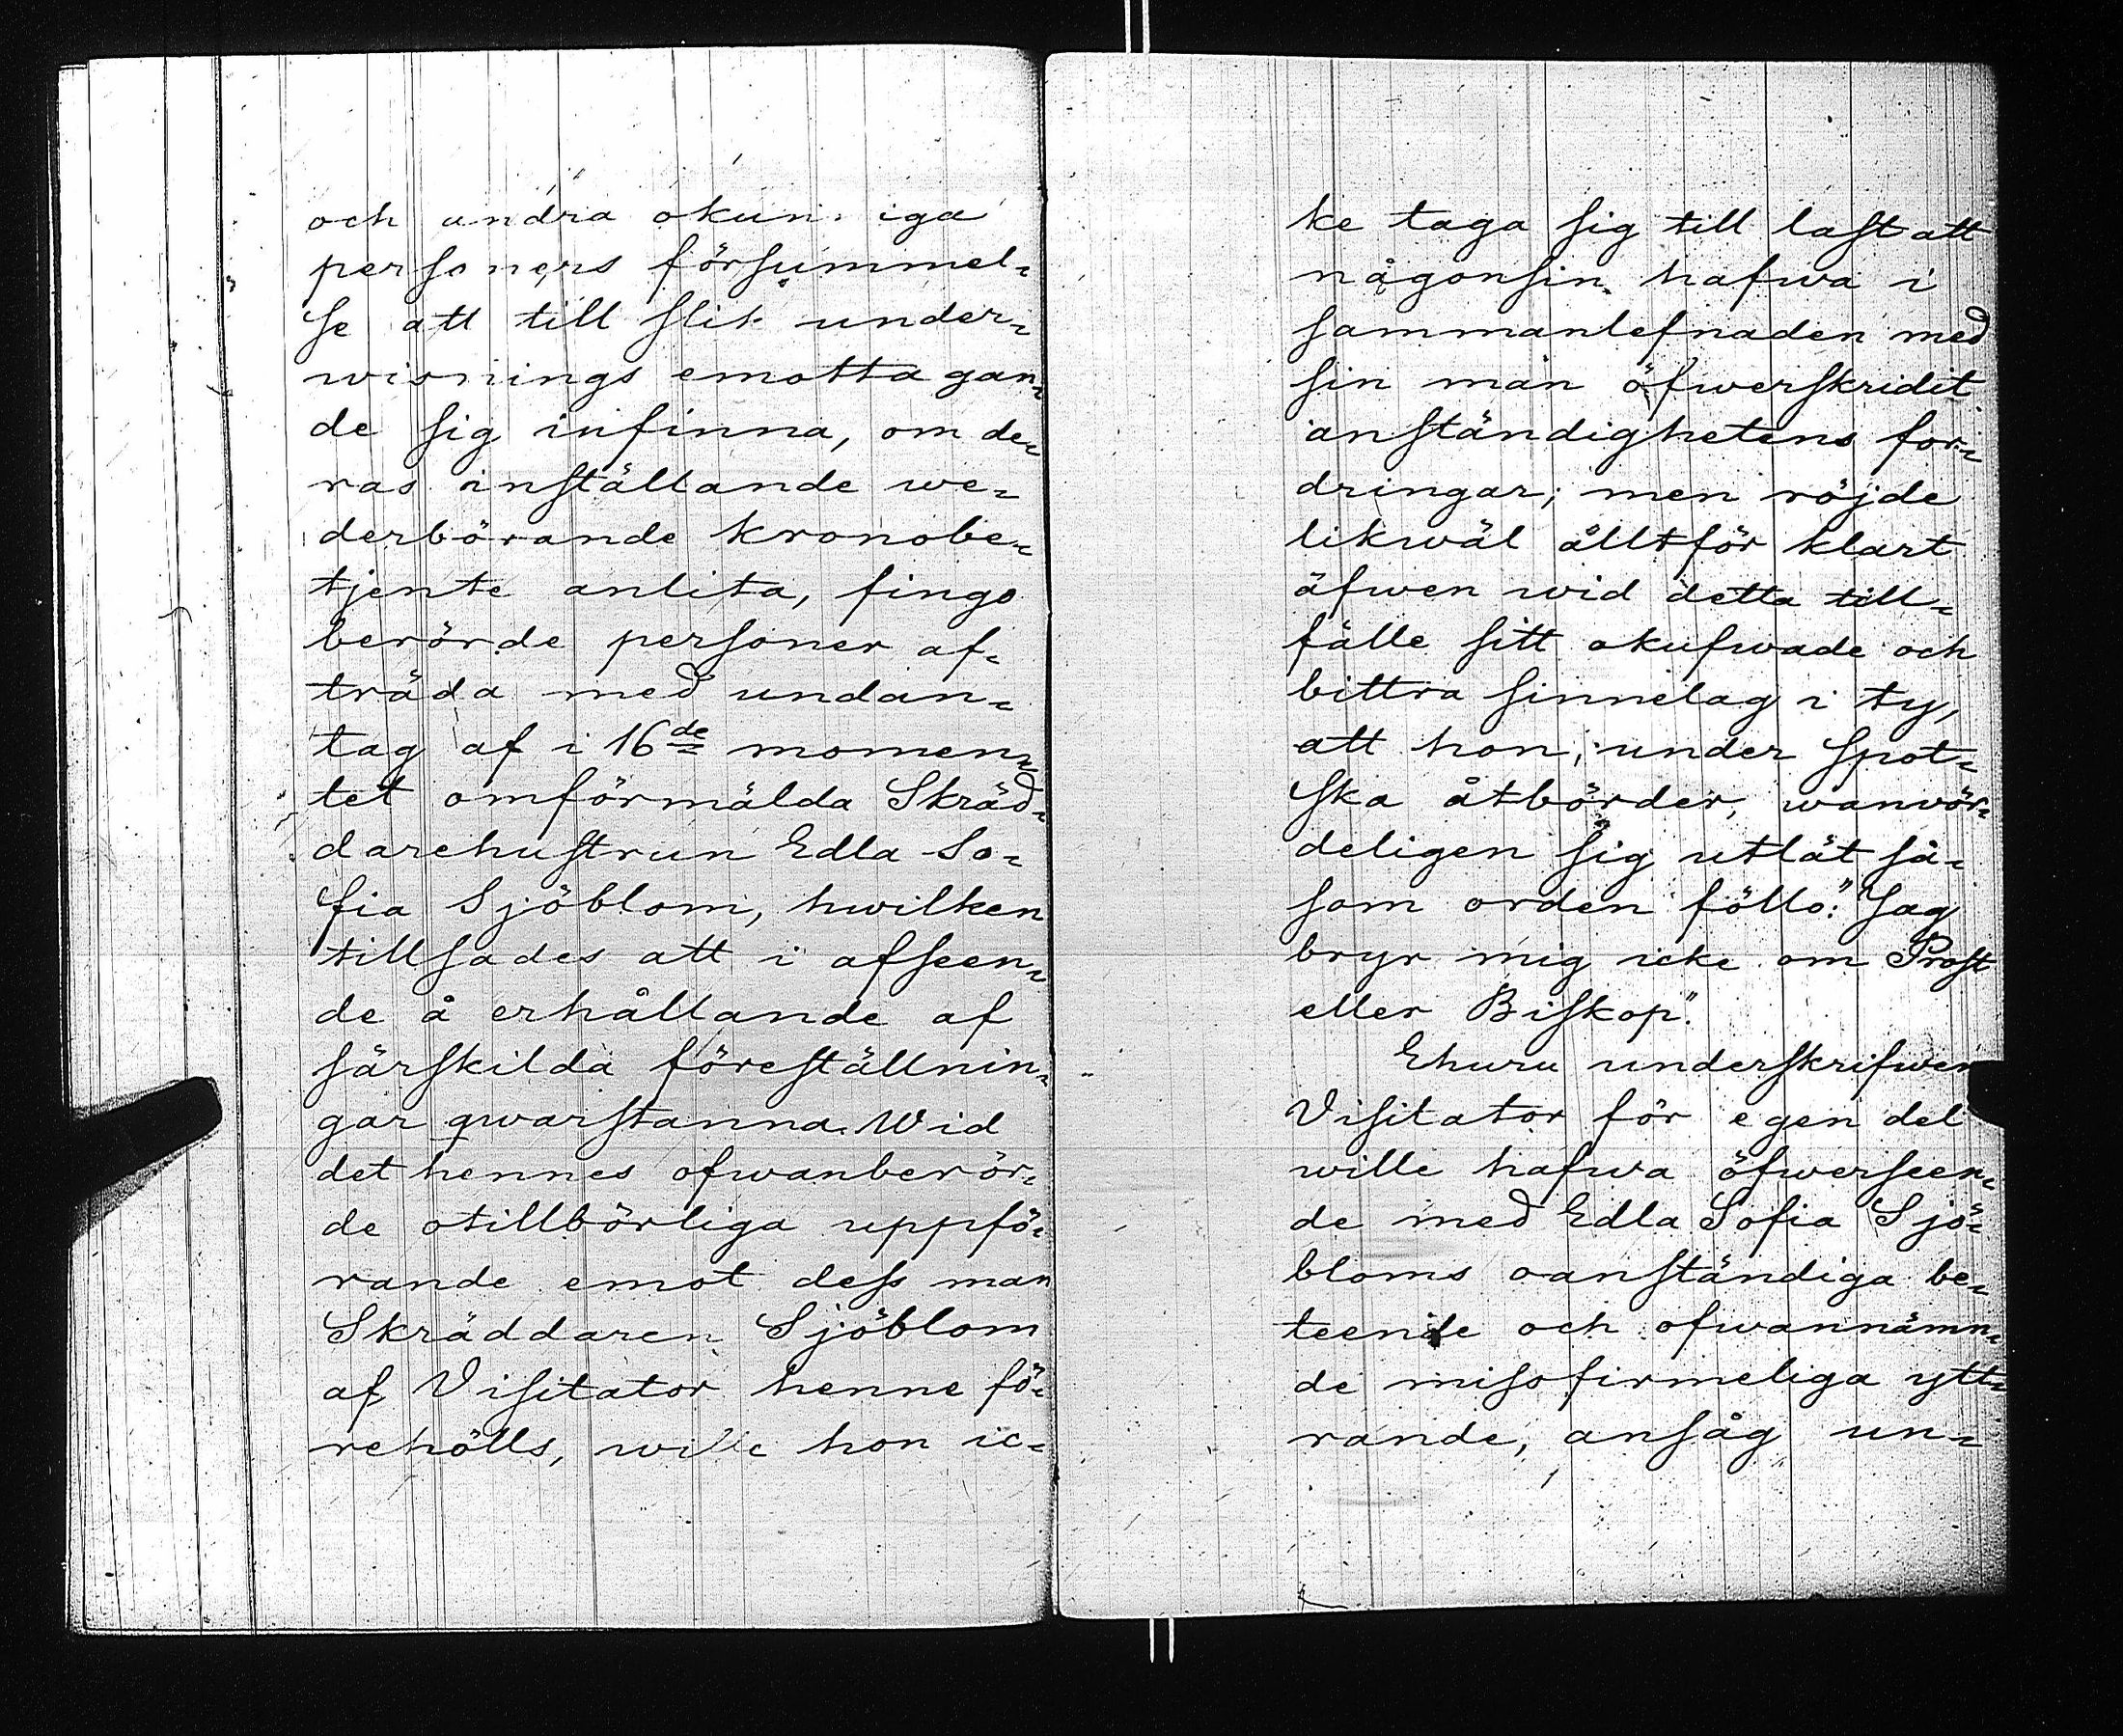 och andra okunniga
personers försummel-
se att till slik under-
wisnings emottagan-
de sig infinna, om de-
ras inställande we-
derbörande kronobe-
tjente anlita, fingo
berörde personer af-
träda med undan-
tag af i 16de momen-
tet omförmälda Skräd-
darehustrun Edla So-
fia Sjöblom, hwilken
tillsades att i afseen-
de å erhållande af
särskilda föreställnin-
gar qwarstanna. Wid
det hennes ofwanberör-
de otillbörliga uppfö-
rande emot dess man
Skräddaren Sjöblom
af Visitator henne fö-
rehölls, wille hon ic-
ke taga sig till last att
någonsin hafwa i
sammanlefnaden med
sin man öfwerskridit
anständighetens for-
dringar; men röjde
likwäl alltför klart
äfwen wid detta till-
fälle sitt okufwade och
bittra sinnelag i ty,
att hon, under spot-
ska åtbörder, wanvör-
deligen sig utlät så-
som orden föllo: "Jag
bryr mig icke om Prost
eller Biskop".
Ehuru underskrifwen
Visitator för egen del
wille hafwa öfwerseen-
de med Edla Sofia Sjö-
bloms oanständiga be-
teende och ofwannämn-
de missfirmeliga ytt-
rande, ansåg un-